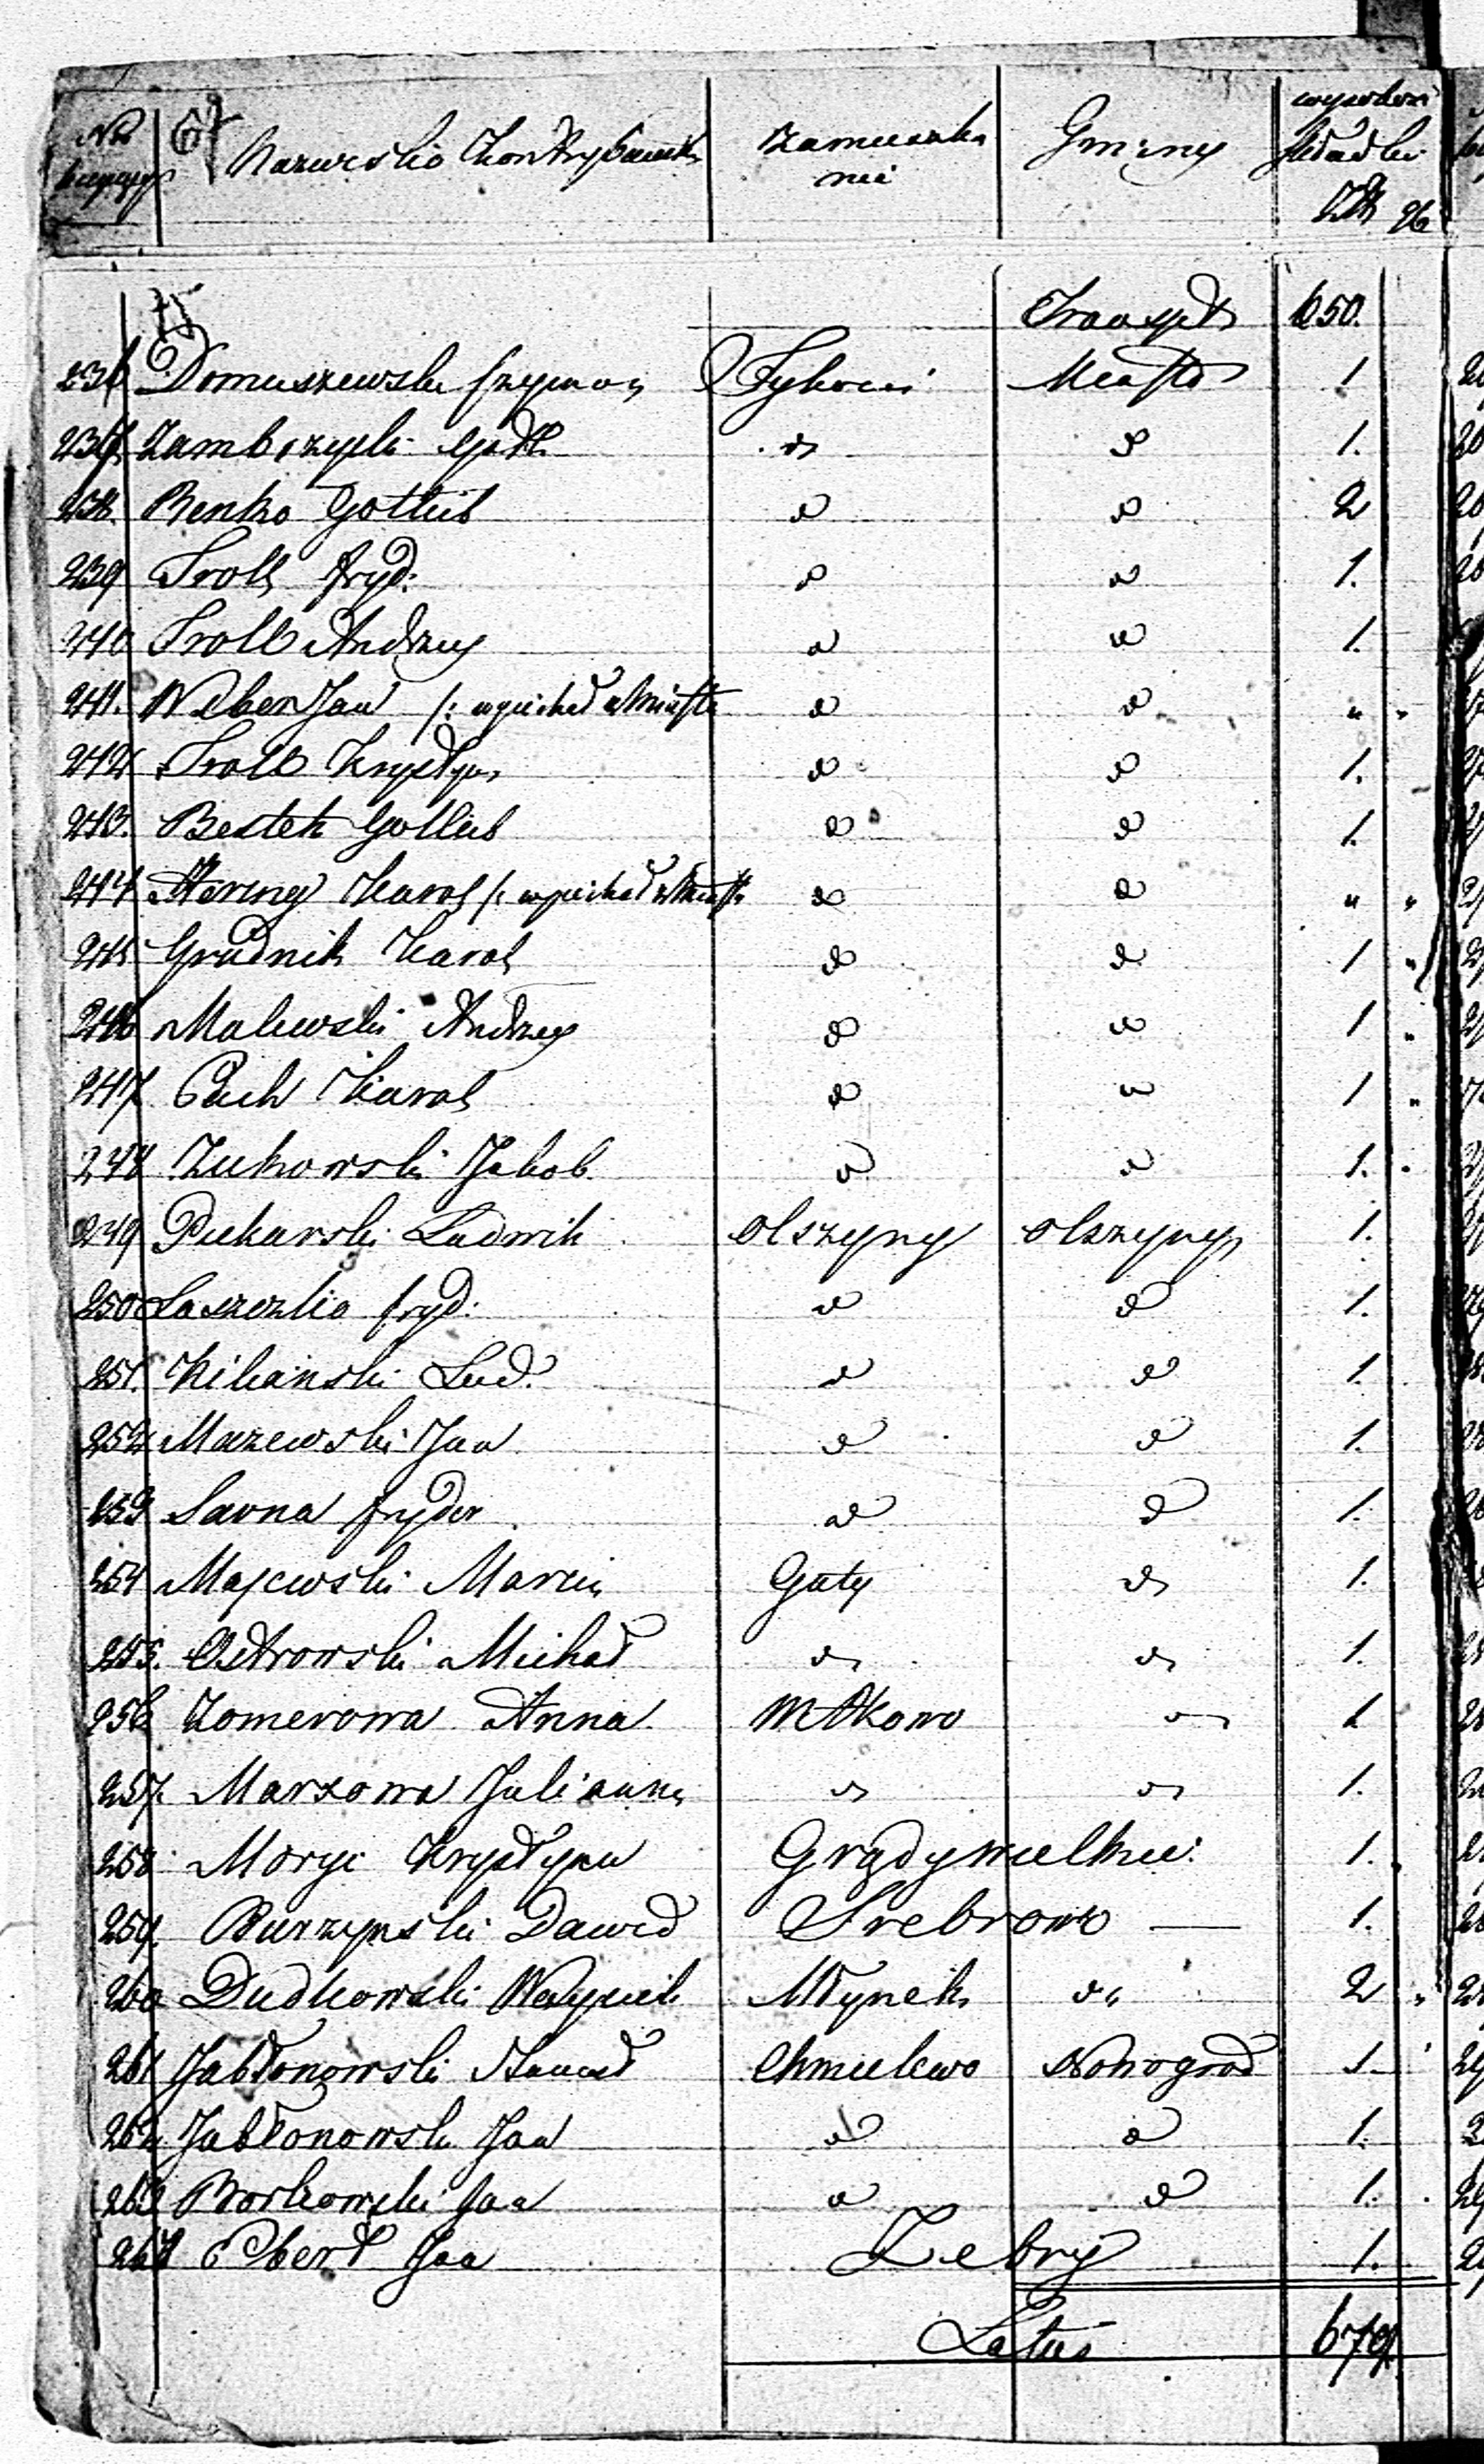 Nazwisko Kontrybuenta Zamieszkanie Gminy Składki
Transpt 650.
236 Domuszewski Szymon Tykocin Miasto 1
237 Zambrzycki 1.
238. Benko Gottlieb 2
239 Troll Fryd: 1.
240 Troll Andrzey 1.
241. Weber Jan /: wyiechał z Miasta " "
242 Troll Krystyan 1.
243. Bestek Gotlieb 1.
244 Hering Karol /: wyiechał z Miasta " "
245 Grudnik Karol 1 "
246 Malewski Andrzey 1 "
247 Pach Karol 1 "
248 Zukowski Jakob. 1.
249 Piekarski Ludwik olszyny olszyny 1.
250 Laszczka fryd: 1.
251. Kilianski Lud. 1.
252 Mazewski Jan 1.
253 Sawna fryder 1.
254 Majewski Marcin Gaty 1.
255. Ostrowski Michał 1.
256 Zomerowa Anna Mątkowo 1
257. Marxowa Julianna 1.
258. Moryc Krystyan Grądy wielkie. 1.
259. Burzynski Dawid Srebrowo — 1.
260 Dudkowski Woyciech Młynek 2 "
261 Jabłonowski Chmielewo Nowogrod 1.
262 Jabłonowski Jan 1.
263 Borkowski Jan 1.
264 Ebert Jan Zebry 1.
Latus 679.